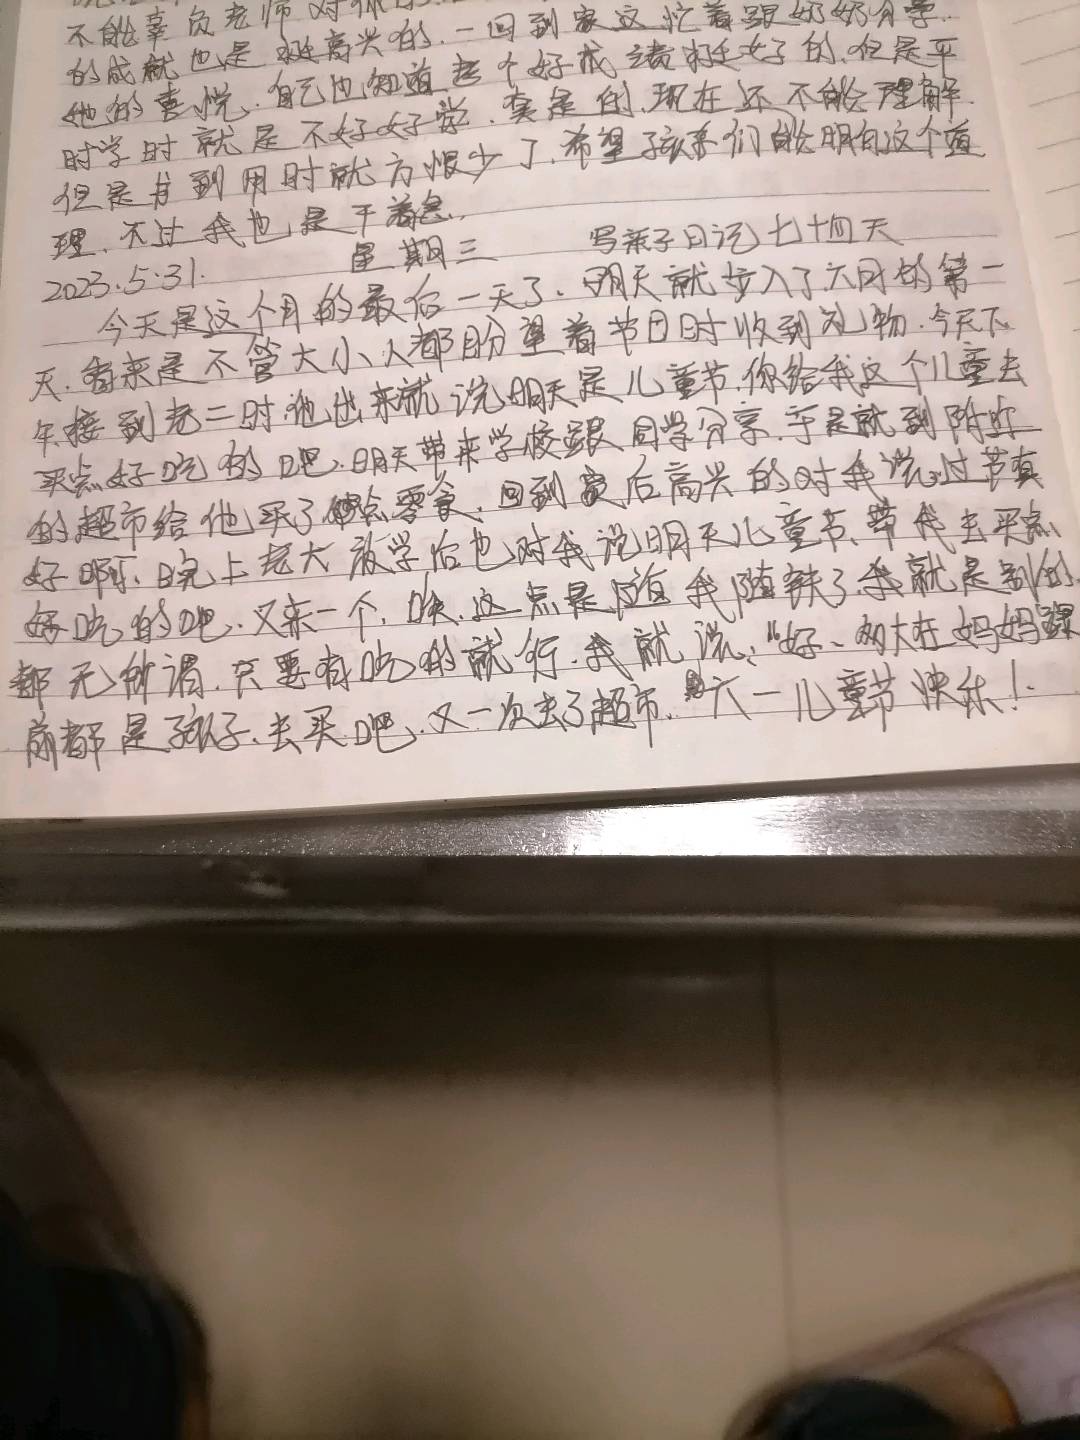 不能辜负老师对你的
的成就也是挺高兴的.一回到家这忙着跟奶奶分享.
他的喜悦.自己也知道考个好成绩挺好的.但是平
时学时就是不好好学.真是的.现在还不能理解.
但是书到用时就方恨少了.希望孩子们能明白这个道
理.不过我也是干着急.
2023.5.31. 星期三 写亲子日记七十四天
今天是这个月的最后一天了.明天就步入了六月的第一
天.看来是不管大小人都盼望着节日时收到礼物.今天下
午接到老二时.他出来就说明天是儿童节.你给我这个儿童去
买点好吃的吧.明天带来学校跟同学分享.于是就到附近
的超市给他买了点零食.回到家后高兴的对我说.过节真
好啊.晚上老大放学后也对我说明天儿童节.带我去买点
好吃的吧.又来一个.唉.这点是随我随铁了.我就是别的
都无所谓.只要有吃的就行.我就说:"好、多大在妈妈跟
前都是孩子.去买吧.又一次去了超市.六一儿童节快乐!